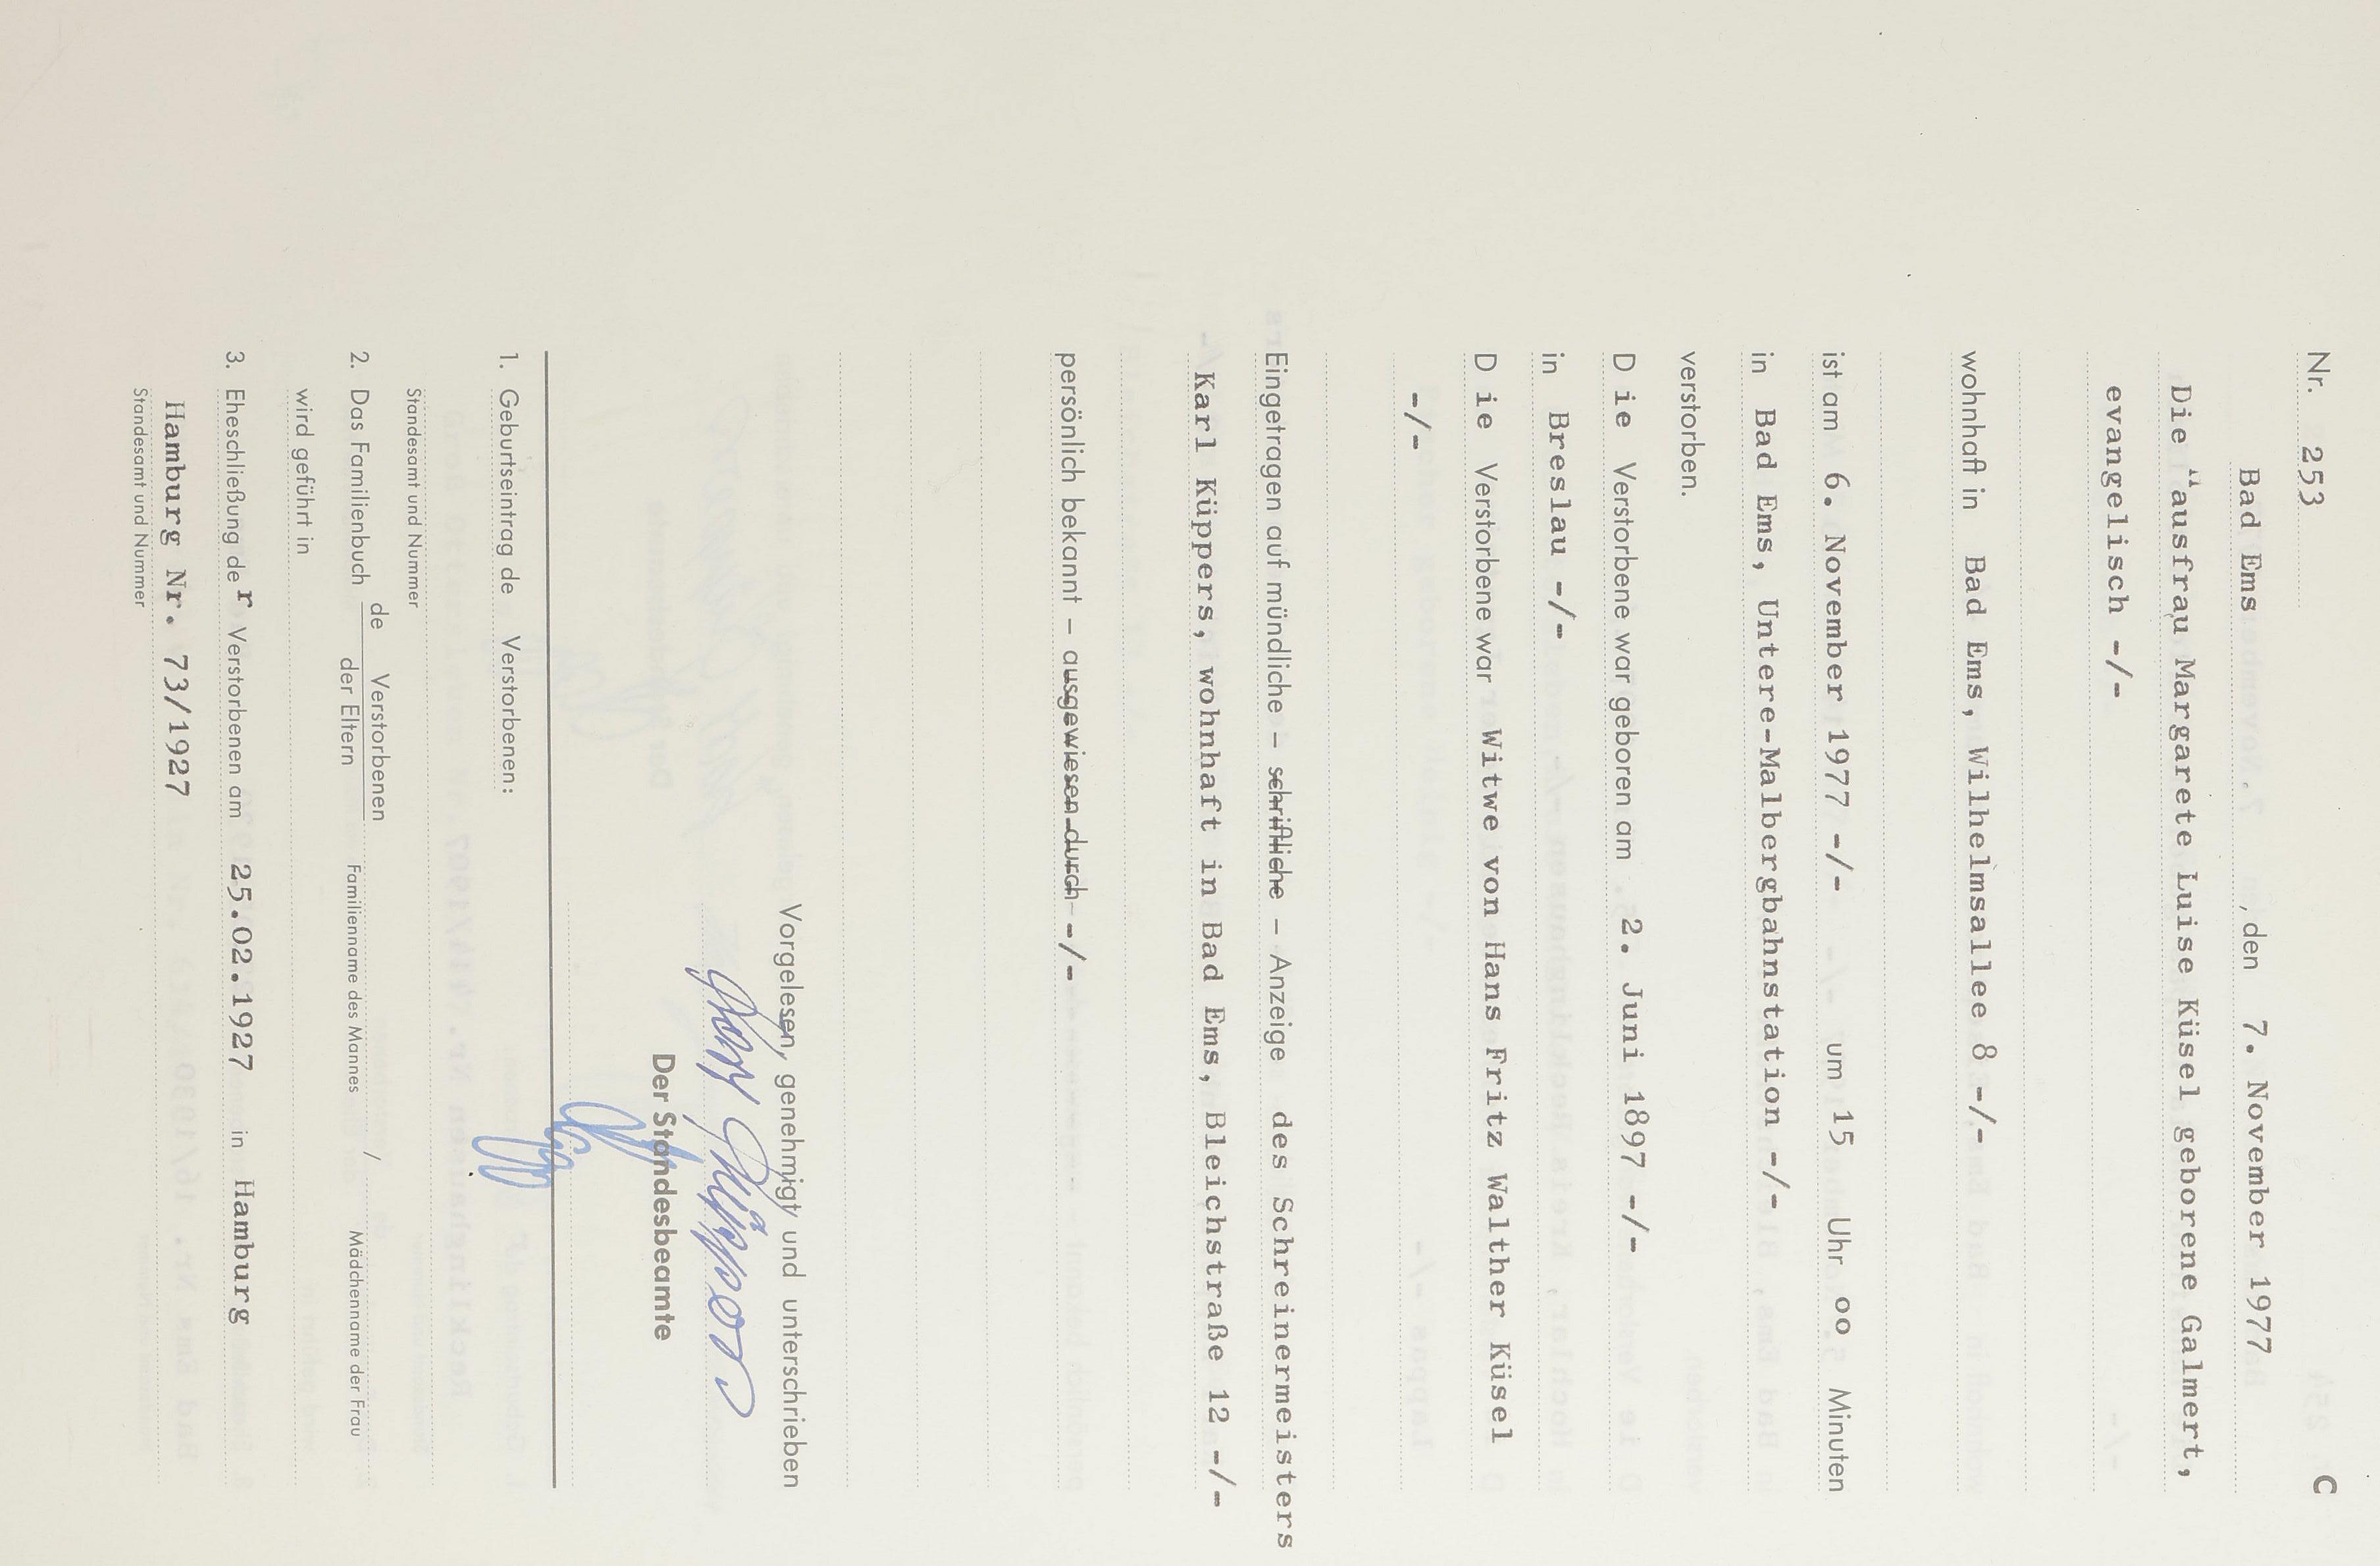 Nr. 253 C
Bad Ems, den 7. November 1977
Die Hausfrau Margarete Luise Küsel geborene Galmert,
evangelisch -/-
wohnhaft in Bad Ems, Wilhelmsallee 8 -/-
ist am 6. November 1977 -/- um 15 Uhr oo Minuten
in Bad Ems, Untere-Malbergbahnstation -/-
verstorben.
D ie Verstorbene war geboren am 2. Juni 1897 -/-
in Breslau -/-
D ie Verstorbene war Witwe von Hans Fritz Walther Küsel
-/-
Eingetragen auf mündliche – schriftliche – Anzeige des Schreinermeisters
Karl Küppers, wohnhaft in Bad Ems, Bleichstraße 12 -/-
persönlich bekannt – ausgewiesen durch -/-
Vorgelesen, genehmigt und unterschrieben
Karl Küppers
Der Standesbeamte
1. Geburtseintrag de Verstorbenen:
Standesamt und Nummer
2. Das Familienbuch de Verstorbenen / der Eltern Familienname des Mannes / Mädchenname der Frau
wird geführt in
3. Eheschließung der Verstorbenen am 25.02.1927 in Hamburg
Hamburg Nr. 73/1927
Standesamt und Nummer